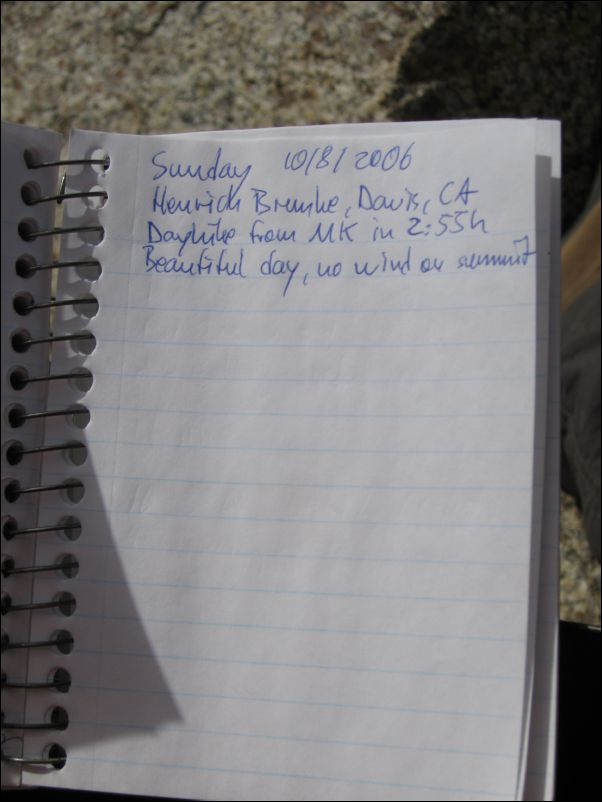 Sunday 10/8/2006
Henrich Bremke, Davis, CA
Dayhike from MK in 2:55h
Beautiful day, no wind on summit